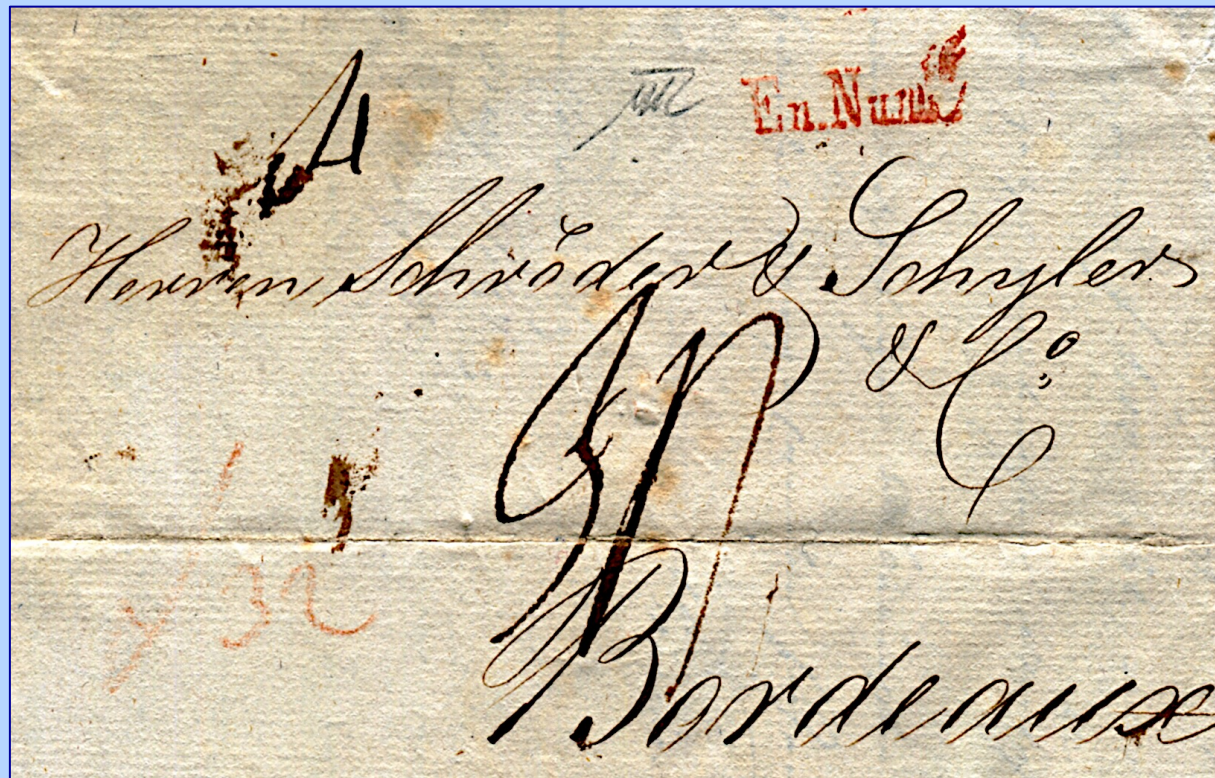 En. Numé
Herren Schröder & Schyler
& Co.
Bordeaux
32